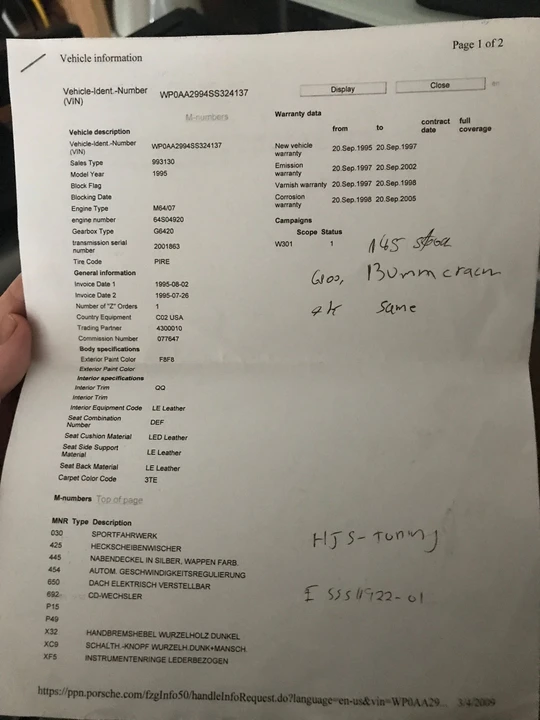 Page 1 of 2
Vehicle information
Vehicle-Ident.-Number (VIN) WP0AA2994SS324137 Display Close
M-numbers
Warranty data
from to contract date full coverage
New vehicle warranty 20.Sep.1995 20.Sep.1997
Emission warranty 20.Sep.1997 20.Sep.2002
Varnish warranty 20.Sep.1997 20.Sep.1998
Corrosion warranty 20.Sep.1998 20.Sep.2005
Campaigns
Scope Status
W301 1
Vehicle description
Vehicle-Ident.-Number (VIN) WP0AA2994SS324137
Sales Type 993130
Model Year 1995
Block Flag
Blocking Date
Engine Type M64/07
engine number 64S04920
Gearbox Type G6420
transmission serial number 2001863
Tire Code PIRE
General information
Invoice Date 1 1995-08-02
Invoice Date 2 1995-07-26
Number of "Z" Orders 1
Country Equipment C02 USA
Trading Partner 4300010
Commission Number 077647
Body specifications
Exterior Paint Color F8F8
Exterior Paint Color
Interior specifications
Interior Trim QQ
Interior Trim
Interior Equipment Code LE Leather
Seat Combination Number DEF
Seat Cushion Material LED Leather
Seat Side Support Material LE Leather
Seat Back Material LE Leather
Carpet Color Code 3TE
145
same
M-numbers Top of page
MNR Type Description
030 SPORTFAHRWERK
425 HECKSCHEIBENWISCHER
445 NABENDECKEL IN SILBER, WAPPEN FARB.
454 AUTOM. GESCHWINDIGKEITSREGULIERUNG
650 DACH ELEKTRISCH VERSTELLBAR
692 CD-WECHSLER
P15
P49
X32 HANDBREMSHEBEL WURZELHOLZ DUNKEL
XC9 SCHALTH.-KNOPF WURZELH.DUNK+MANSCH.
XF5 INSTRUMENTENRINGE LEDERBEZOGEN
HJS-Tuning
https://ppn.porsche.com/fzgInfo50/handleInfoRequest.do?language=en-us&vin=WP0AA29... 3/4/2009